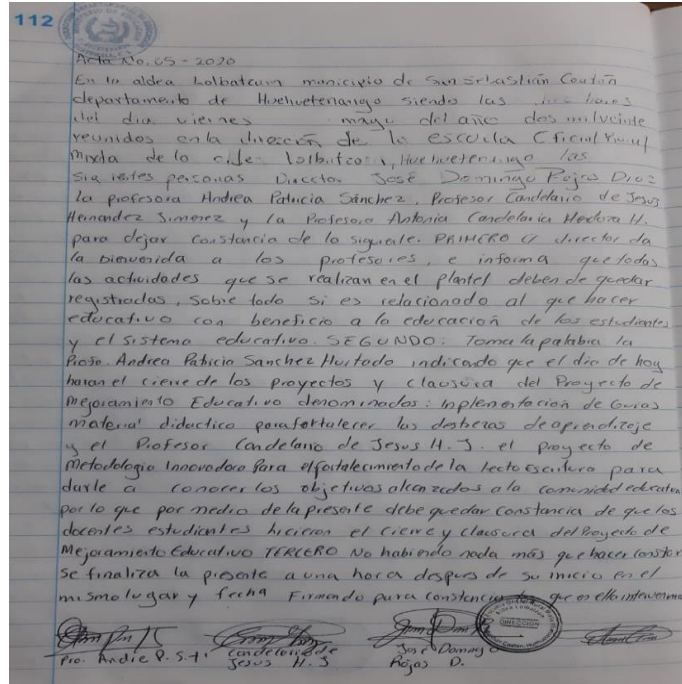 112
Acta No. 05-2020
En la aldea Lolbatzam municipio de San Sebastián Coatán
departamento de Huehuetenango siendo las tres horas
del dia viernes mayo del año dos mil veinte
reunidos en la dirección de la escuela Oficial Rural
Mixta de la Huehuetenango las
siguientes personas Director José Domingo Rojas Diaz
La profesora Andrea Patricia Sánchez, Profesor Candelario de Jesus
Hernandez Simenez y la Profesora Antonia Candelaria H.
para dejar constancia de lo siguiente. PRIMERO el director da
la bienvenida a los profesores, e informa que todas
las actividades que se realizan en el plantel deben de quedar
registradas, sobre todo si es relacionado al que hacer
educativo con beneficio a la educación de los estudiantes
y el sistema educativo. SEGUNDO: Toma la palabra la
Profa. Andrea Patricia Sanchez Hurtado indicando que el dia de hoy
haran el cierre de los proyectos y clausura del Proyecto de
Mejoramiento Educativo denominados: Inplementacion de Guias
material didactico para fortalecer las destrezas de aprendizaje
y el Profesor Candelario de Jesus H. J. el proyecto de
Metodologia Innovadora Para el fortalecimiento de la lecto Escritura para
darle a conocer los objetivos alcanzados a la comunidad educativa
por lo que por medio de la presente debe quedar constancia de que los
docentes estudiantes hicieron el cierre y clausura del Proyecto de
Mejoramiento Educativo TERCERO No habiendo nada más que hacer constar
se finaliza la presente a una hora despues de su inicio en el
mismo lugar y fecha Firmando para constancia los que en ella intervenimos
Pro. Andie P. S. H. Candelario de Jesus H. J. José Domingo Rojas D.
DIRECCION